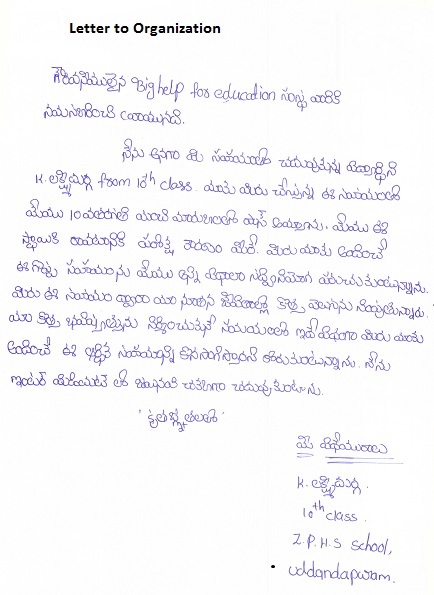 Letter to Organization
గౌరవనీయులైన Big help for education సంస్థ వారికి
నమస్కరించి వ్రాయునది.
నేను అనగా మీ సహాయంతో చదువుతున్న విద్యార్థిని
K. లక్ష్మీదుర్గ from 10th class. మాకు మీరు చేస్తున్న ఈ సహాయంతో
మేము 10వతరగతి మంచి మార్కులతో పాస్ అయ్యాను. మేము ఈ
స్థాయికి రావటానికి పరోక్ష కారణం మీరే. మీరు మాకు అందించే
ఈ గొప్ప సహాయంను మేము అన్ని విధాలా సద్వినియోగ పరుచుకుంటున్నాను.
మీరు ఈ సహాయం ద్వారా మా నూతన జీవితాల్లో కొత్త వెలుగును నింపుతున్నారు.
మా కొత్త భవిష్యత్తును నిర్ణయించుకునే సమయంలో ఇదే విధంగా మీరు మాకు
అందించే ఈ ఆర్థిక సహాయాన్ని కొనసాగిస్తారని కోరుకుంటున్నాను. నేను
ఇంటర్ మీడియట్ లో కూడా చక్కగా చదువుకుంటాను.
'కృతజ్ఞతలతో'
మీ విధేయురాలు
K. లక్ష్మీదుర్గ.
10th class.
Z.P.H.S school,
uddandapuram.